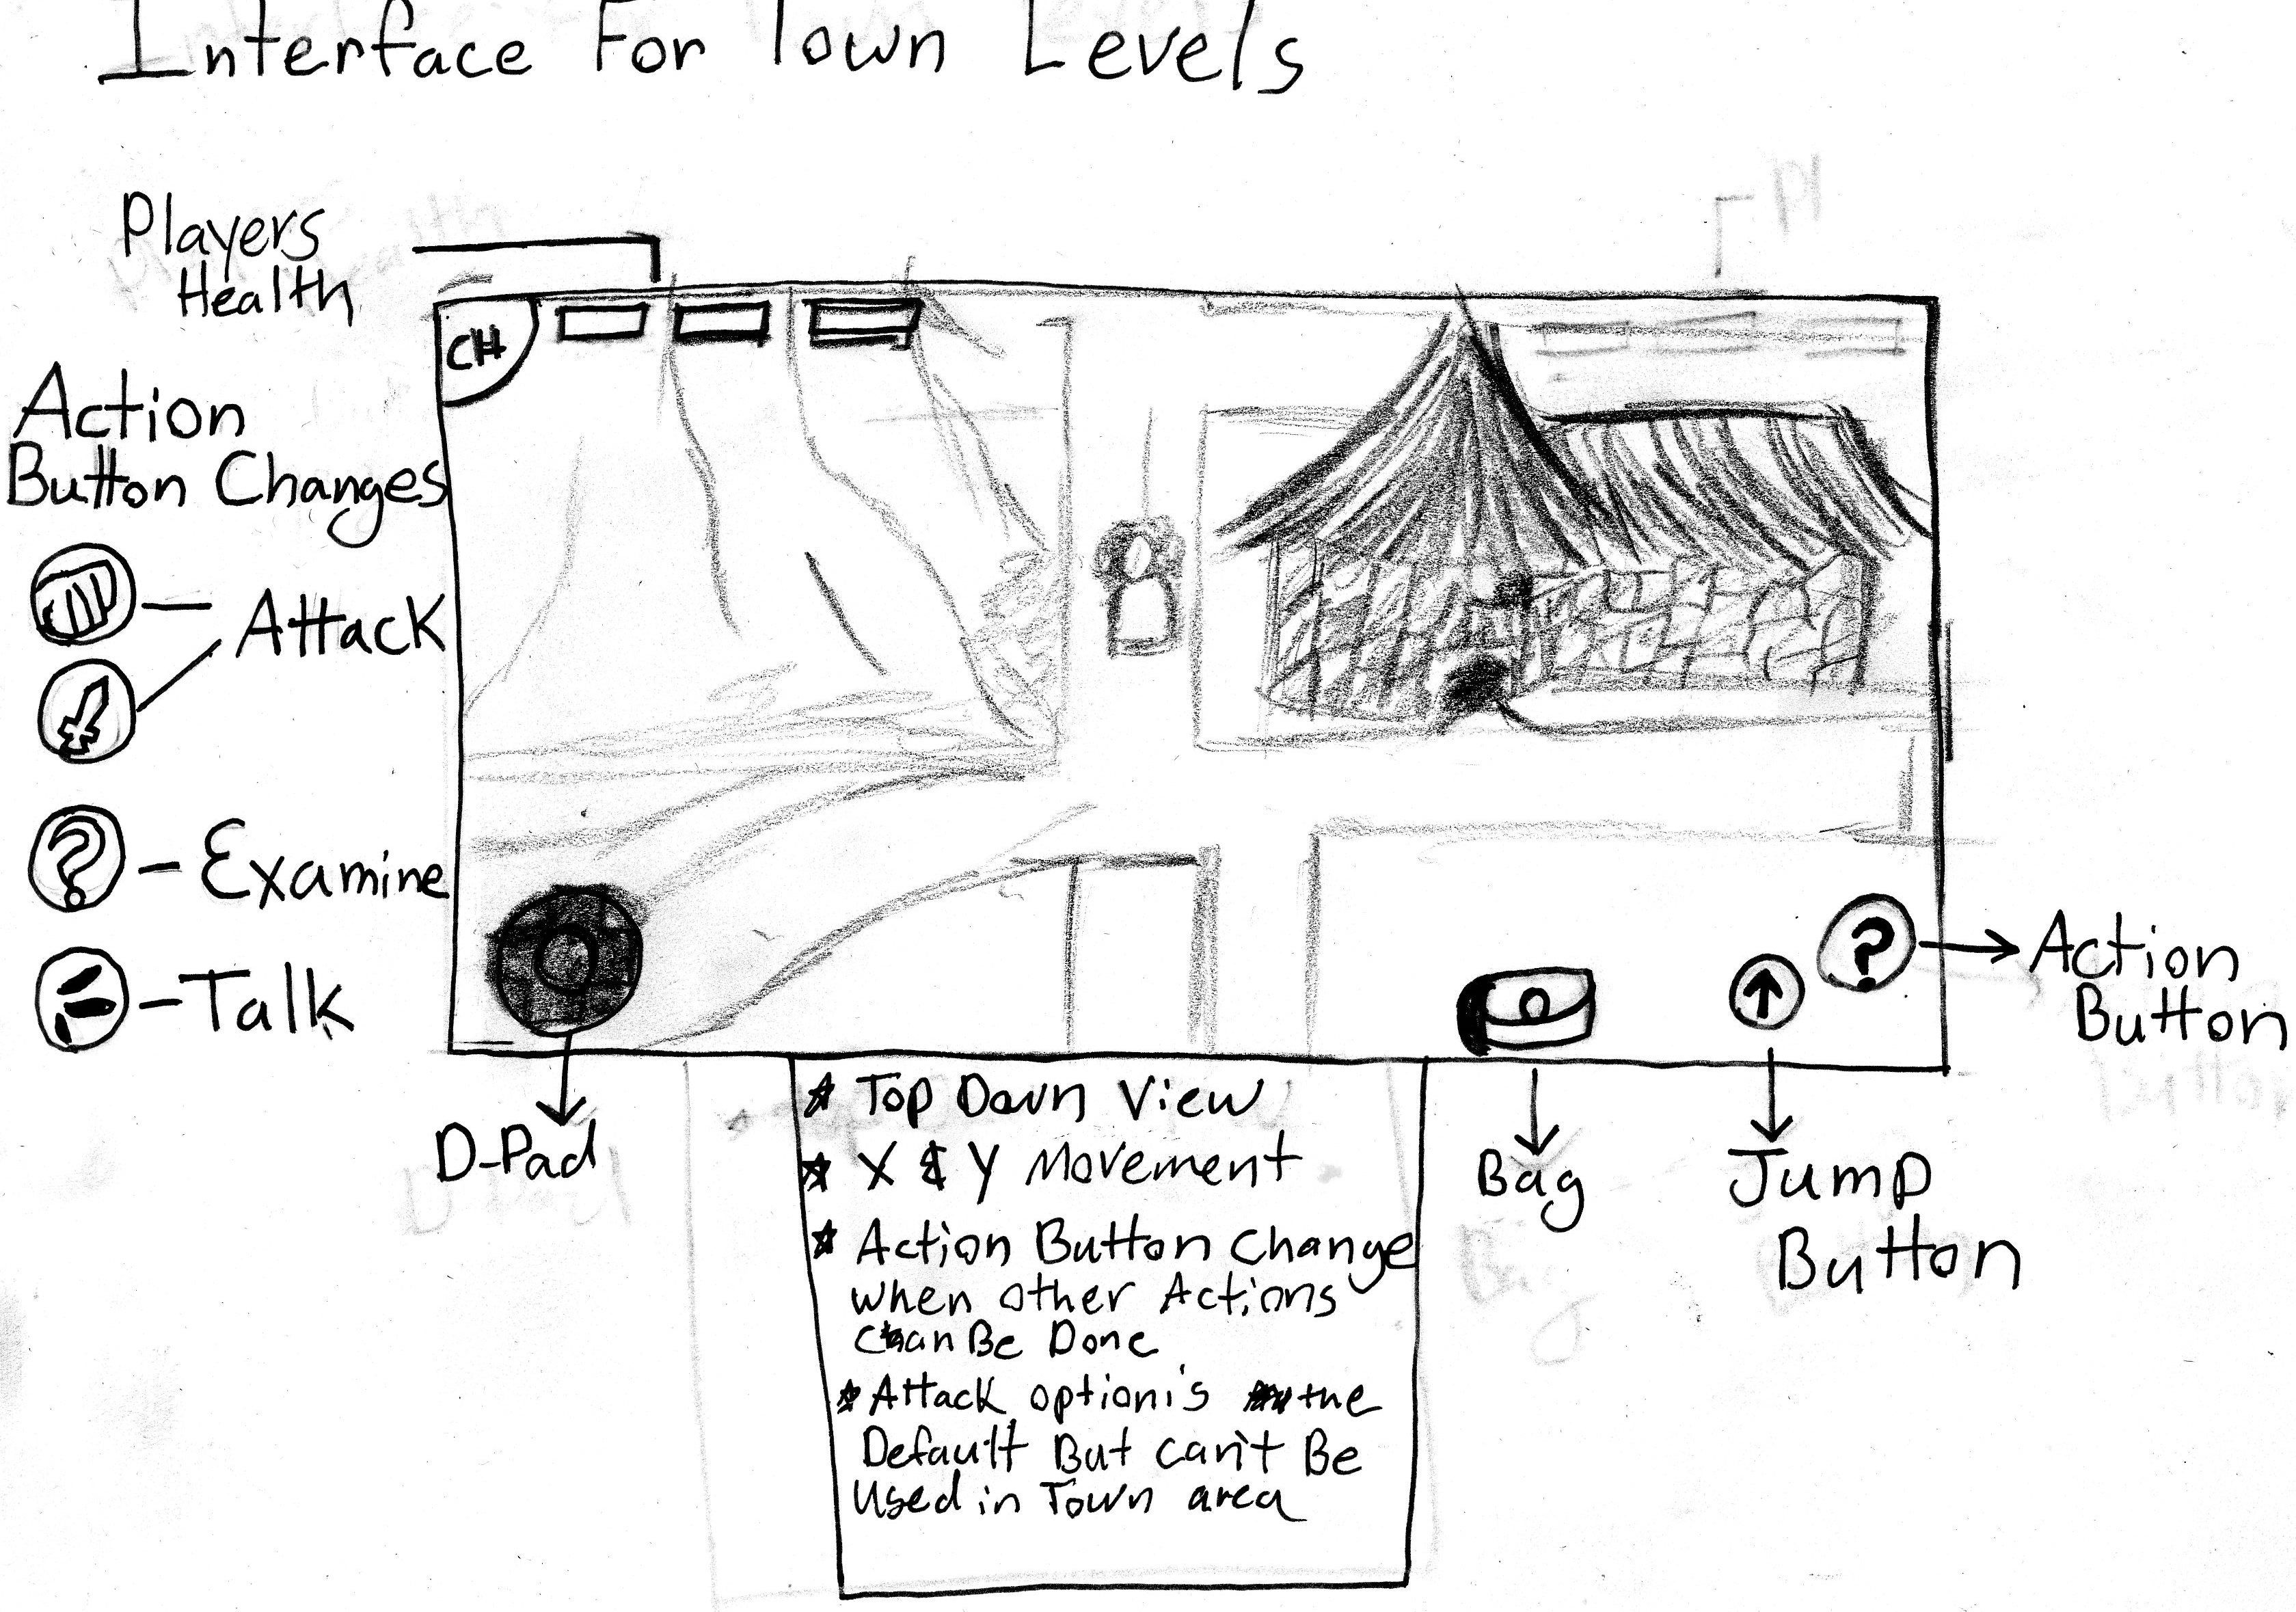 Interface For Town Levels
Players
Health
CH
Action
Button Changes
Attack
Examine
Talk
D-Pad
Bag
Jump
Button
Action
Button
Top Down View
X & Y Movement
Action Button Change
when other Actions
Can Be Done
Attack option is the
Default But can't Be
Used in Town area